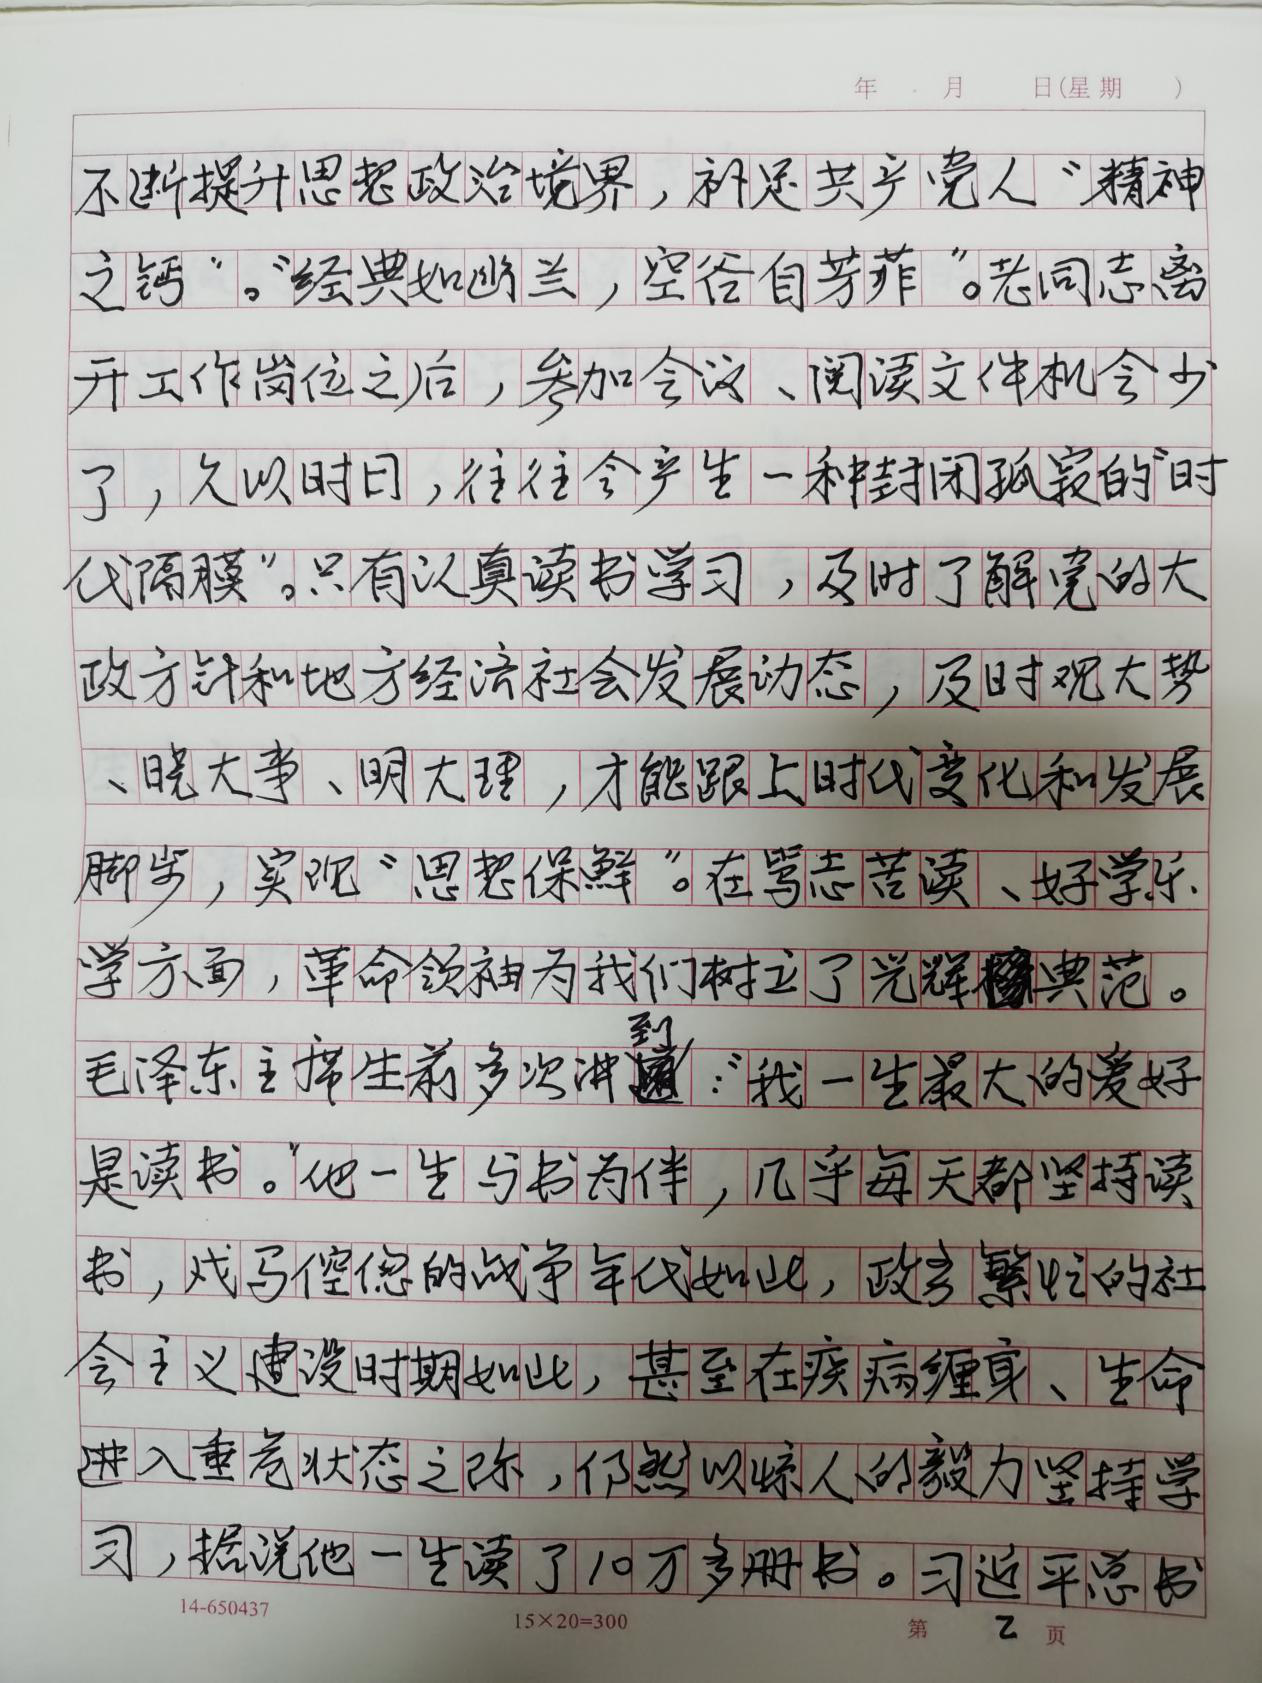 年 月 日(星期 )
不断提升思想政治境界，补足共产党人“精神
之钙”。“经典如幽兰，空谷自芳菲”。老同志离
开工作岗位之后，参加会议、阅读文件机会少
了，久以时日，往往会产生一种封闭孤寂的“时
代隔膜”。只有认真读书学习，及时了解党的大
政方针和地方经济社会发展动态，及时观大势
、晓大事、明大理，才能跟上时代变化和发展
脚步，实现“思想保鲜”。在笃志苦读、好学乐
学方面，革命领袖为我们树立了光辉典范。
毛泽东主席生前多次讲到：“我一生最大的爱好
是读书。”他一生与书为伴，几乎每天都坚持读
书，戎马倥偬的战争年代如此，政务繁忙的社
会主义建设时期如此，甚至在疾病缠身、生命
进入重危状态之际，仍然以惊人的毅力坚持学
习，据说他一生读了10万多册书。习近平总书
14-650437 15×20=300 第 2 页